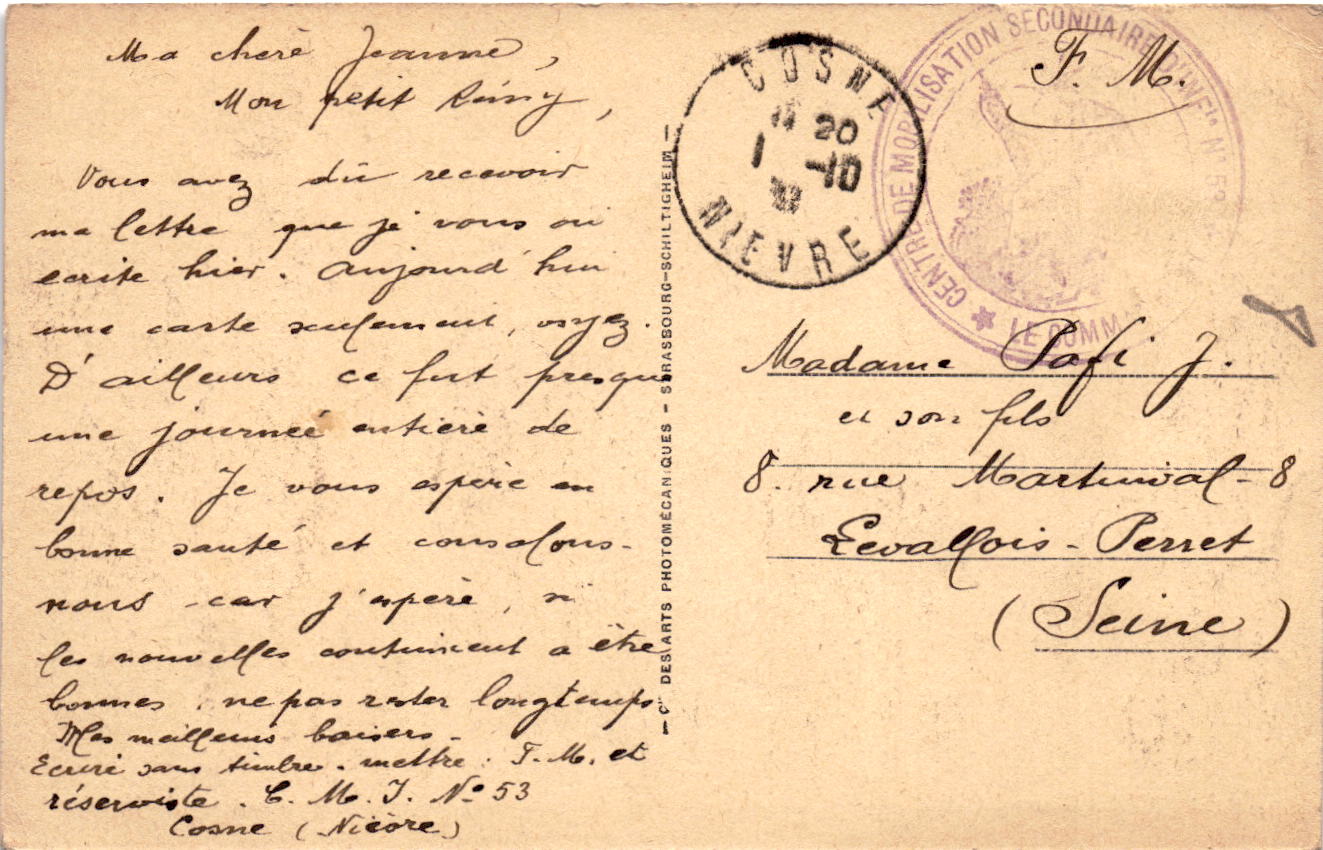 Ma cherè Jeanne,
Mon petit Rémy,
Vous avez dû recevoir
ma lettre que je vous ai
ecrite hier. Aujourd'hui
une carte seulement, voyez.
D'ailleurs ce fut presque
une journeé entierè de
repos. Je vous esperè en
bonne santé et consolons-
nous - car j'esperè, si
les nouvelles continuent a être
bonnes, ne pas rester longtemps
Mes meilleurs baisers -
Ecrirè sans timbre. mettre : F. M. et
réserviste. C. M. I. N° 53
Cosne (Nièvre)
— Cie DES ARTS PHOTOMÉCANIQUES — STRASBOURG-SCHILTIGHEIM —
COSNE
20
1 -10
NIEVRE
CENTRE DE MOBILISATION SECONDAIRE D'INFie N° 53
LE COMM
F. M.
Madame Pafi J.
et son fils
8. rue Martinval - 8
Levallois - Perret
(Seine)